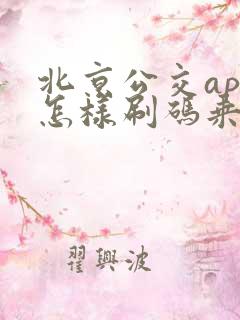 北京公交ap
怎样刷码乘
翟興波